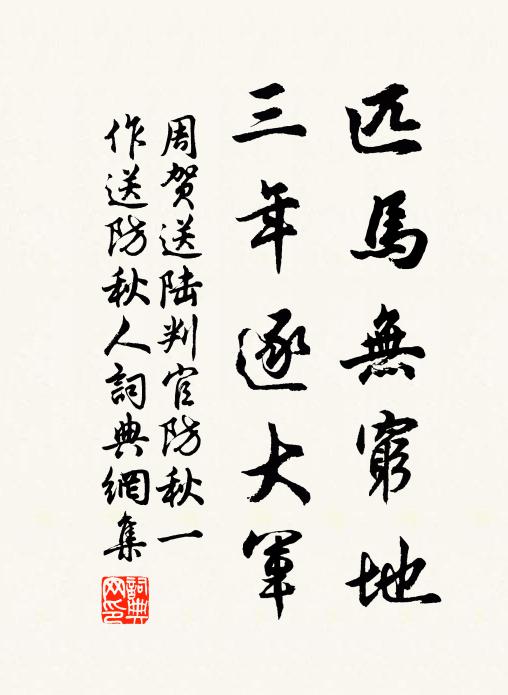 匹馬無窮地
三年逐大軍
周賀送陸判官防秋一
作送防秋人詞典網集
詞典网印